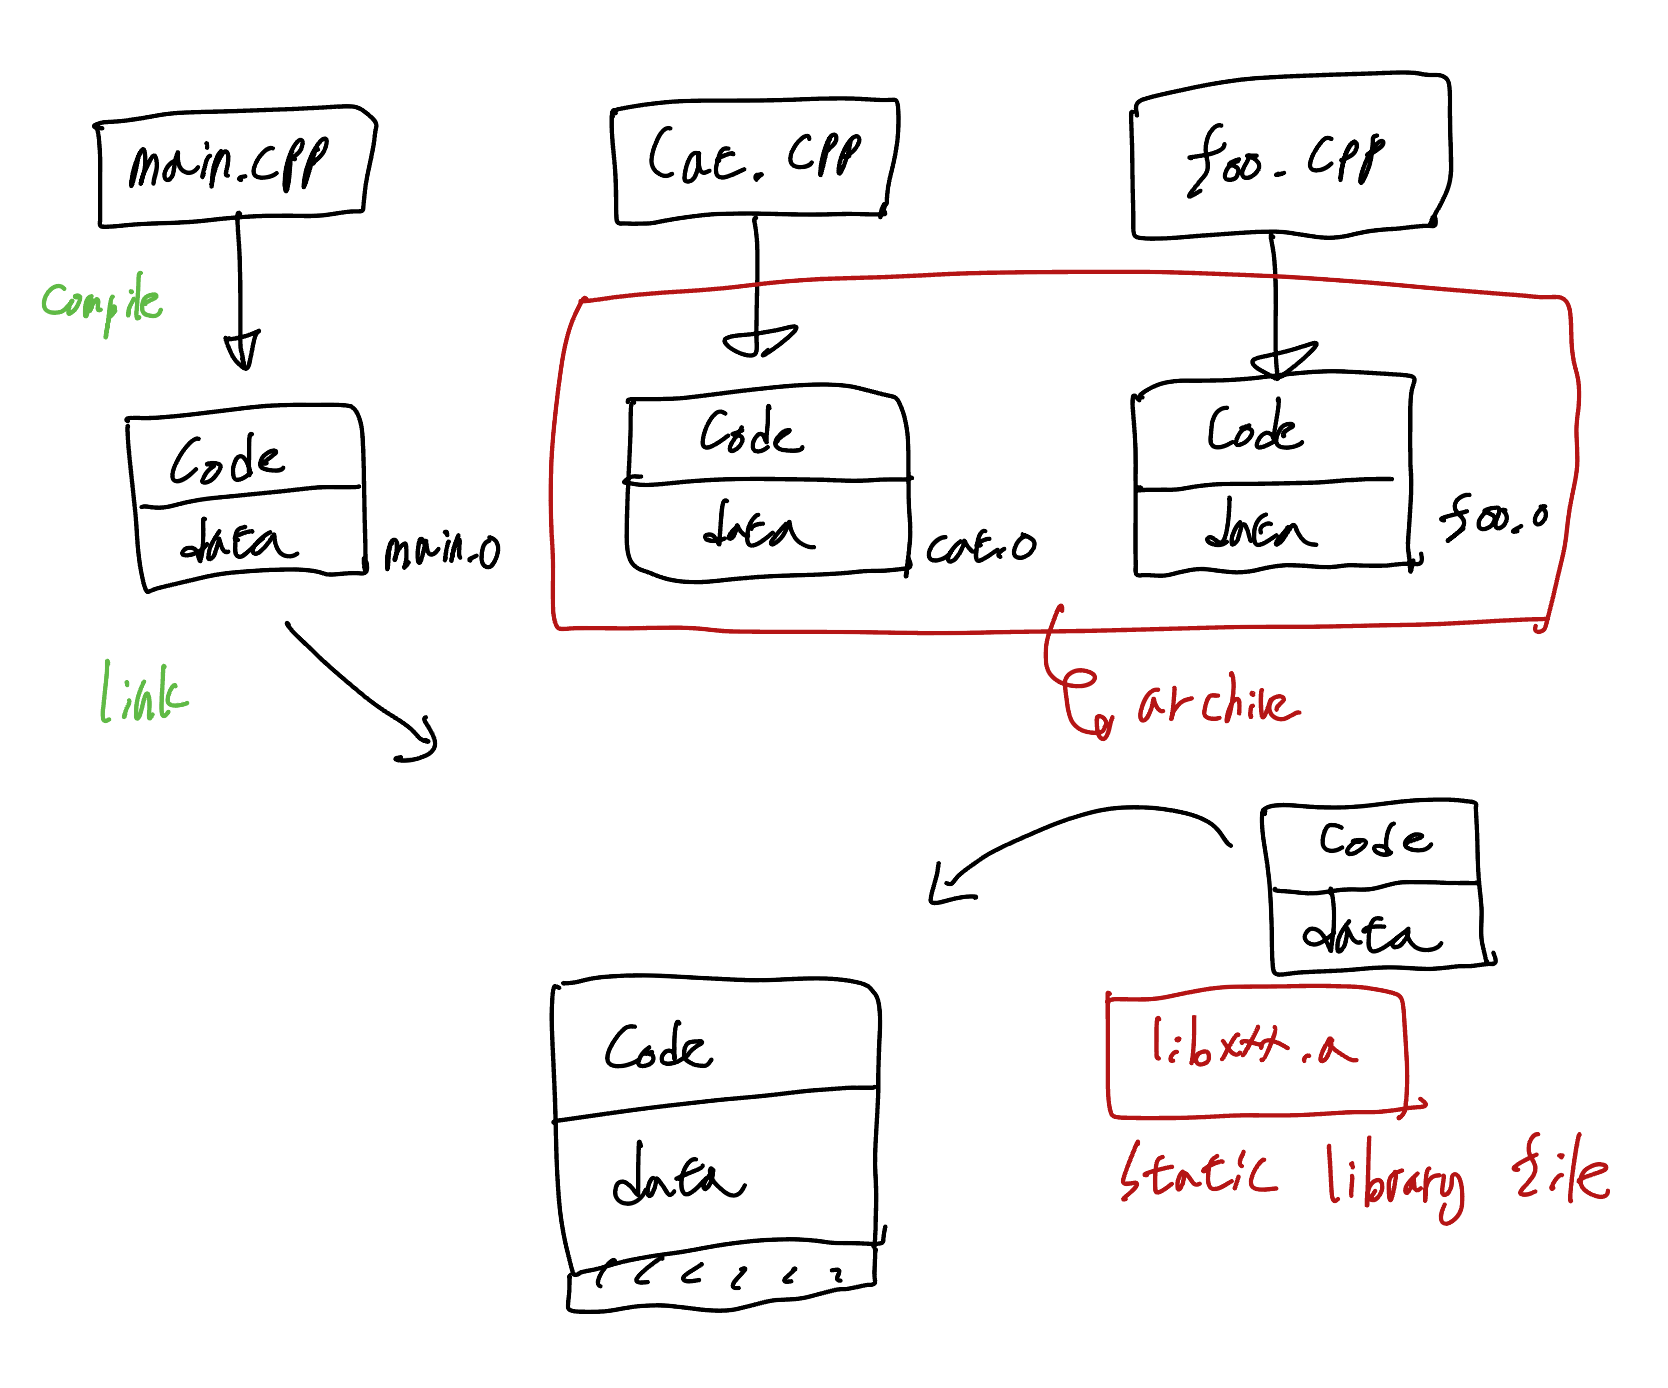 main.cpp
Cat.cpp
foo.cpp
compile
Code
data
main.o
Code
data
cat.o
Code
data
foo.o
link
archive
Code
data
Code
data
libxxx.a
static library file